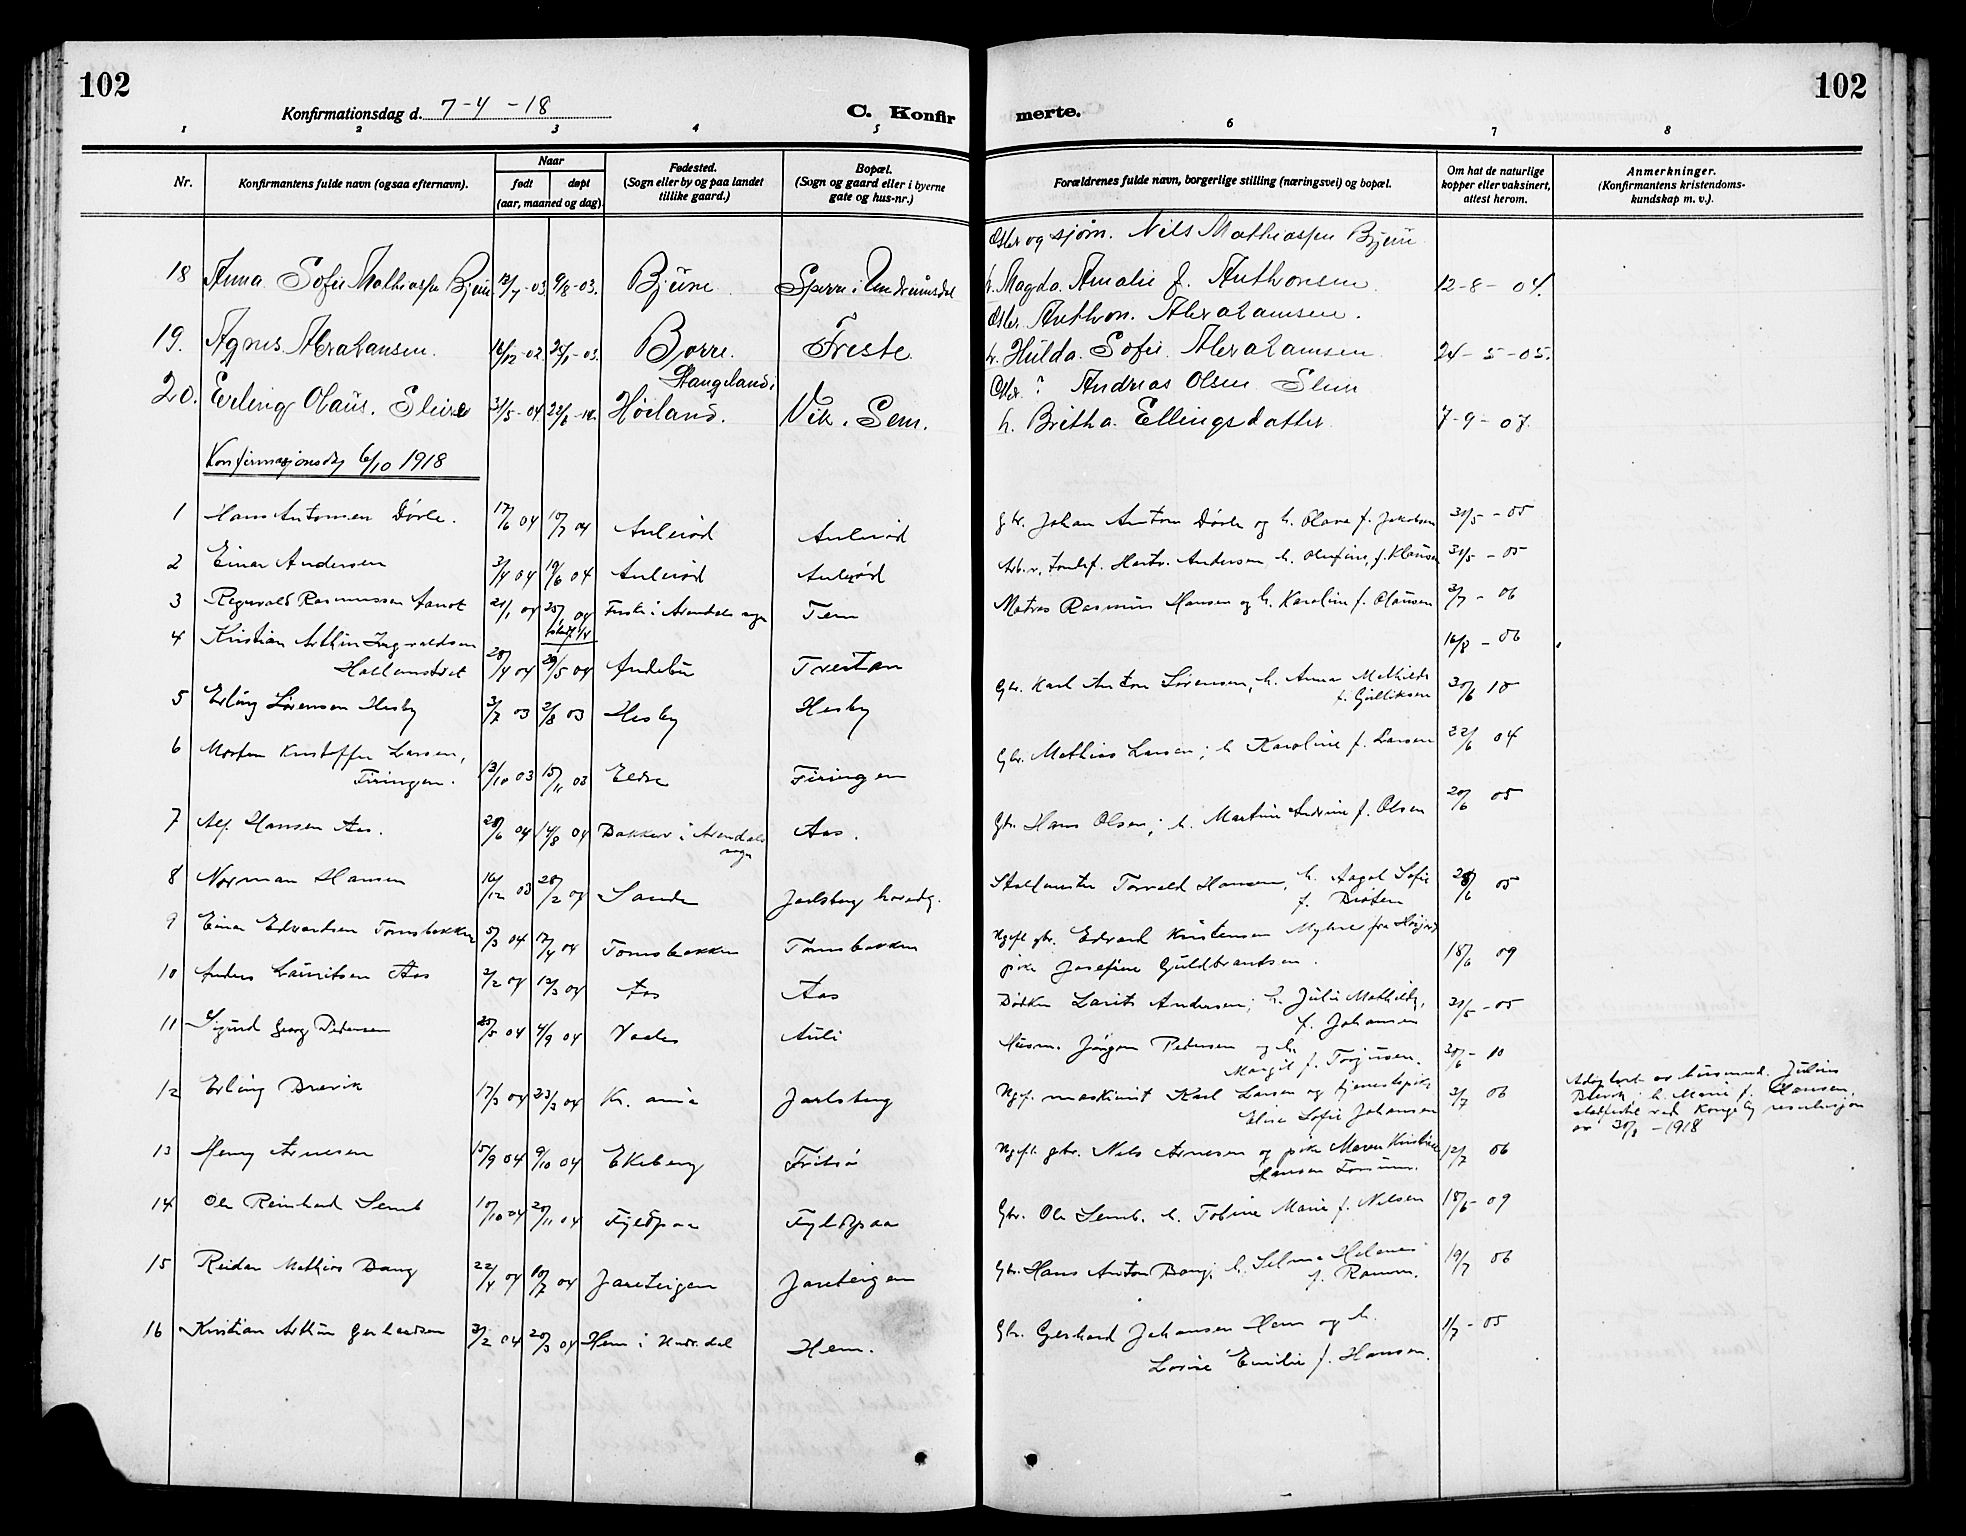 102
102
Konfirmationsdag d. 7-4-18
C. Konfir
merte.
1 2 3 4 5 6 7 8
Nr.
Konfirmantens fulde navn (ogsaa efternavn).
Naar
født døpt
(aar, maaned og dag).
Fødested.
(Sogn eller by og paa landet
tillike gaard.)
Bopæl.
(Sogn og gaard eller i byerne
gate og hus-nr.)
Forældrenes fulde navn, borgerlige stilling (næringsvei) og bopæl.
Om hat de naturlige
kopper eller vaksinert,
attest herom.
Anmerkninger.
(Konfirmantens kristendoms-
kundskap m. v.).
og sjøm. Nils Mathiassen Bjune
18 Anna Sofie Mathiassen Bjune 12/7-03. 9/8-03. Bjune Sperre i Undrumsdal h. Magda Amalie f. Anthonsen 12-8-04.
Anthon Abrahamsen.
19. Agnes Abrahamsen. 16/12-02. 25/1-03. Borre. Freste. h. Hulda Sofie Abrahamsen 24-5-05.
Stangeland i
? Andreas Olsen Sleire
20. Erling Olaus Sleire 31/5-04. Høiland. Vik. Sem. h. Britha Ellingsdatter 7-9-07.
Konfirmasjonsdag 6/10 1918
1 Hans Antonsen Dørle. 17/6 04 10/7 04 Aulerød Aulerød Gbr. Johan Anton Dørle og h. Olava f. Jakobsen 31/5-05
2 Einar Andersen 3/4 04 19/6 04 Aulerød Aulerød Andersen h. Olufine, f. Klausen 31/5-05
3 Rasmussen 21/1 04 25/ 04 i Arendals sogn Tem Matros Rasmus Hansen og h. Karoline f. Olausen 3/7-06
4 Kristian Arthur Ingvaldsen 16/8-06
28/4 04 29/5 04 Andebu Trestan
Gbr. Karl Anton Sørensen, h. Anna Mathilde 30/6 10
f. Gulliksen
5 Erling Sørensen Hesby 3/7 03 2/8 03 Hesby Hesby
6 Morten Kristoffer Larsen,
Firingen. 13/10 03 15/11 03 Eldre Firingen
Gbr. Mathias Larsen; h. Karoline f. Larsen 22/6 04
7 Alf Hansen Aas. 28/6 04 14/8 04 Bakker i Arendals Aas.
sogn
Gbr. Hans Olsen; h. Martine Andrine f. Olsen 20/6 05
8 Norman Hansen 16/12 03 28/2 04 Sande Jarlsberg hovedg. Torvald Hansen, h. Aagot Sofie 28/6 05
9 Einar Edvardsen Tomsbakken 5/3 04 17/4 04 Tomsbakken Tomsbakken Ugift gbr. Edvard Kristensen Myhre fra
pike Josefine Guldbrantsen. 18/6 09
10 Anders Lauritsen Aas 2/2 04 13/3 04 Aas Aas Bødker Laurits Andersen; h. Julie Mathilde, 31/5-05
f. Johansen
11 Sigurd Georg Pedersen 25/5 04 4/9 04 Auli Husm. Jørgen Pedersen og h. 30/6-10
Margit f. Torjusen.
12 Erling Brevik 17/3 04 23/3 04 Kr.ania Jarlsberg Ugift maskinist Karl Larsen og tjenestepike 3/7 06
Elise Sofie Johansen
Adoptert av husmand Julius
Brevik; h. Marie f. Hansen,
stadfestet ved Kongelig resolusjon
av 30/8-1918
13 Henry Arnesen 15/9 04 9/10 04 Ekeberg Fritsø Ugift gbr. Nils Arnesen og pike Maren Kristine 12/7 06
Hansen
14 Ole Reinhard Semb 10/10 04 20/11 04 Fyldpaa Fyldpaa Gbr. Ole Semb. h. Tobine Marie f. Nilsen 18/6-09
15 Reidar Mathias Bang 22/4 04 10/7 04 Jareteigen Jareteigen Gbr. Hans Anton Bang; h. Selma Helene 19/7 06
16 Kristian Arthur Gerhardsen 3/2 04 20/3 04 Hem i Undr.dal Hem. Gbr. Gerhard Johansen Hem og h. 1/7-05
Lovise Emilie f. Hansen.